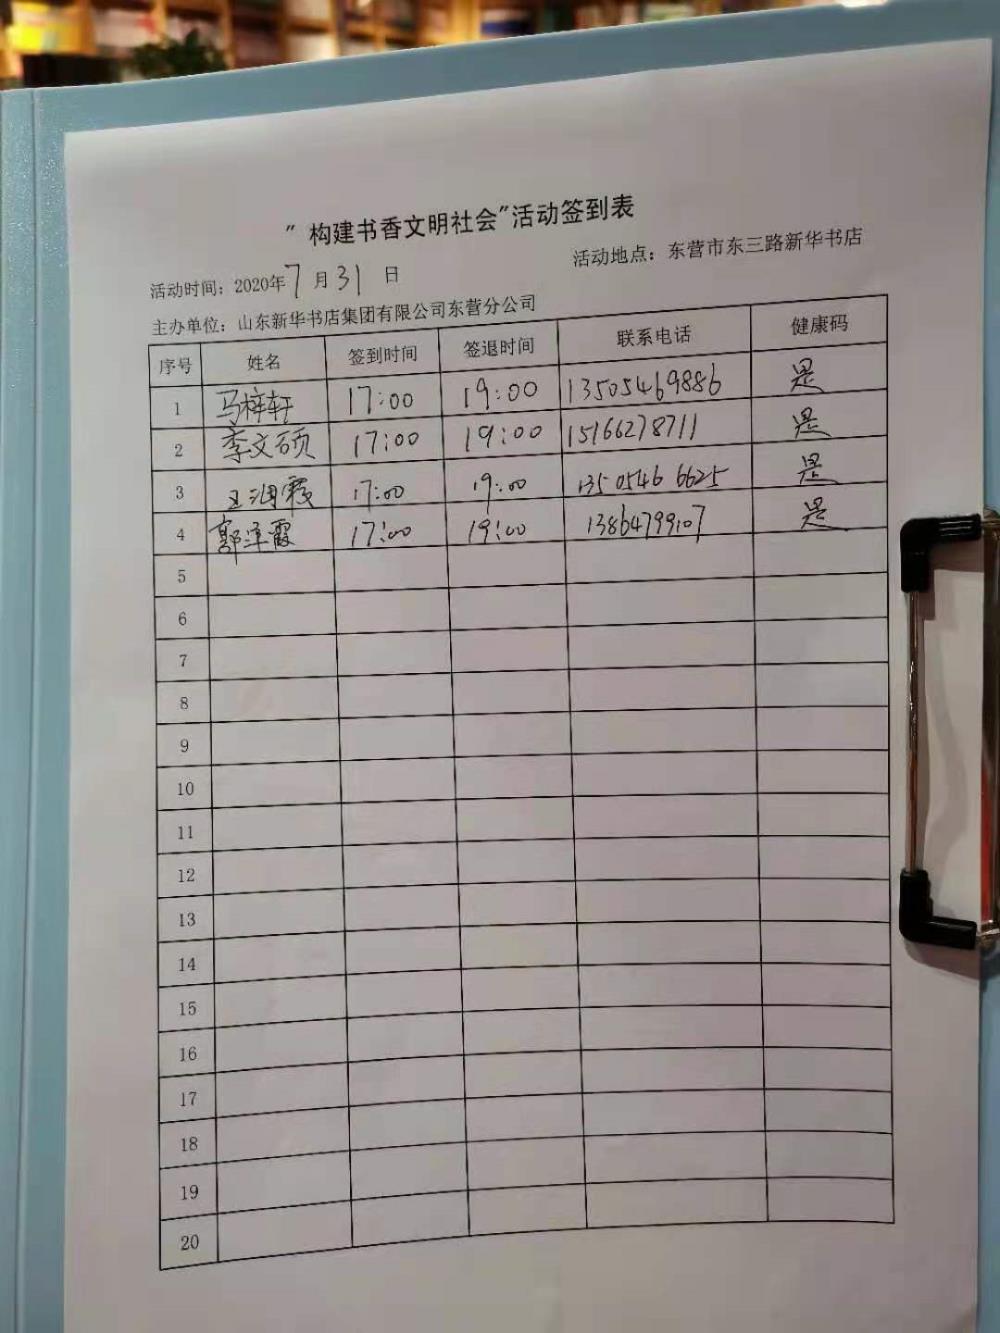 "构建书香文明社会"活动签到表
活动时间：2020年7月31日 活动地点：东营市东三路新华书店
主办单位：山东新华书店集团有限公司东营分公司
序号 姓名 签到时间 签退时间 联系电话 健康码
1 马梓轩 17:00 19:00 13505469886 是
2 李文硕 17:00 19:00 15166278711 是
3 王润霞 17:00 19:00 13505466625 是
4 郭泽霞 17:00 19:00 13864799107 是
5
6
7
8
9
10
11
12
13
14
15
16
17
18
19
20